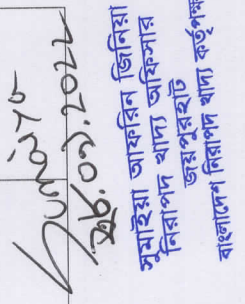 ২৬.০৭.২০২২
সুমাইয়া আফরিন জিনিয়া
নিরাপদ খাদ্য অফিসার
জয়পুরহাট
বাংলাদেশ নিরাপদ খাদ্য কর্তৃপক্ষ